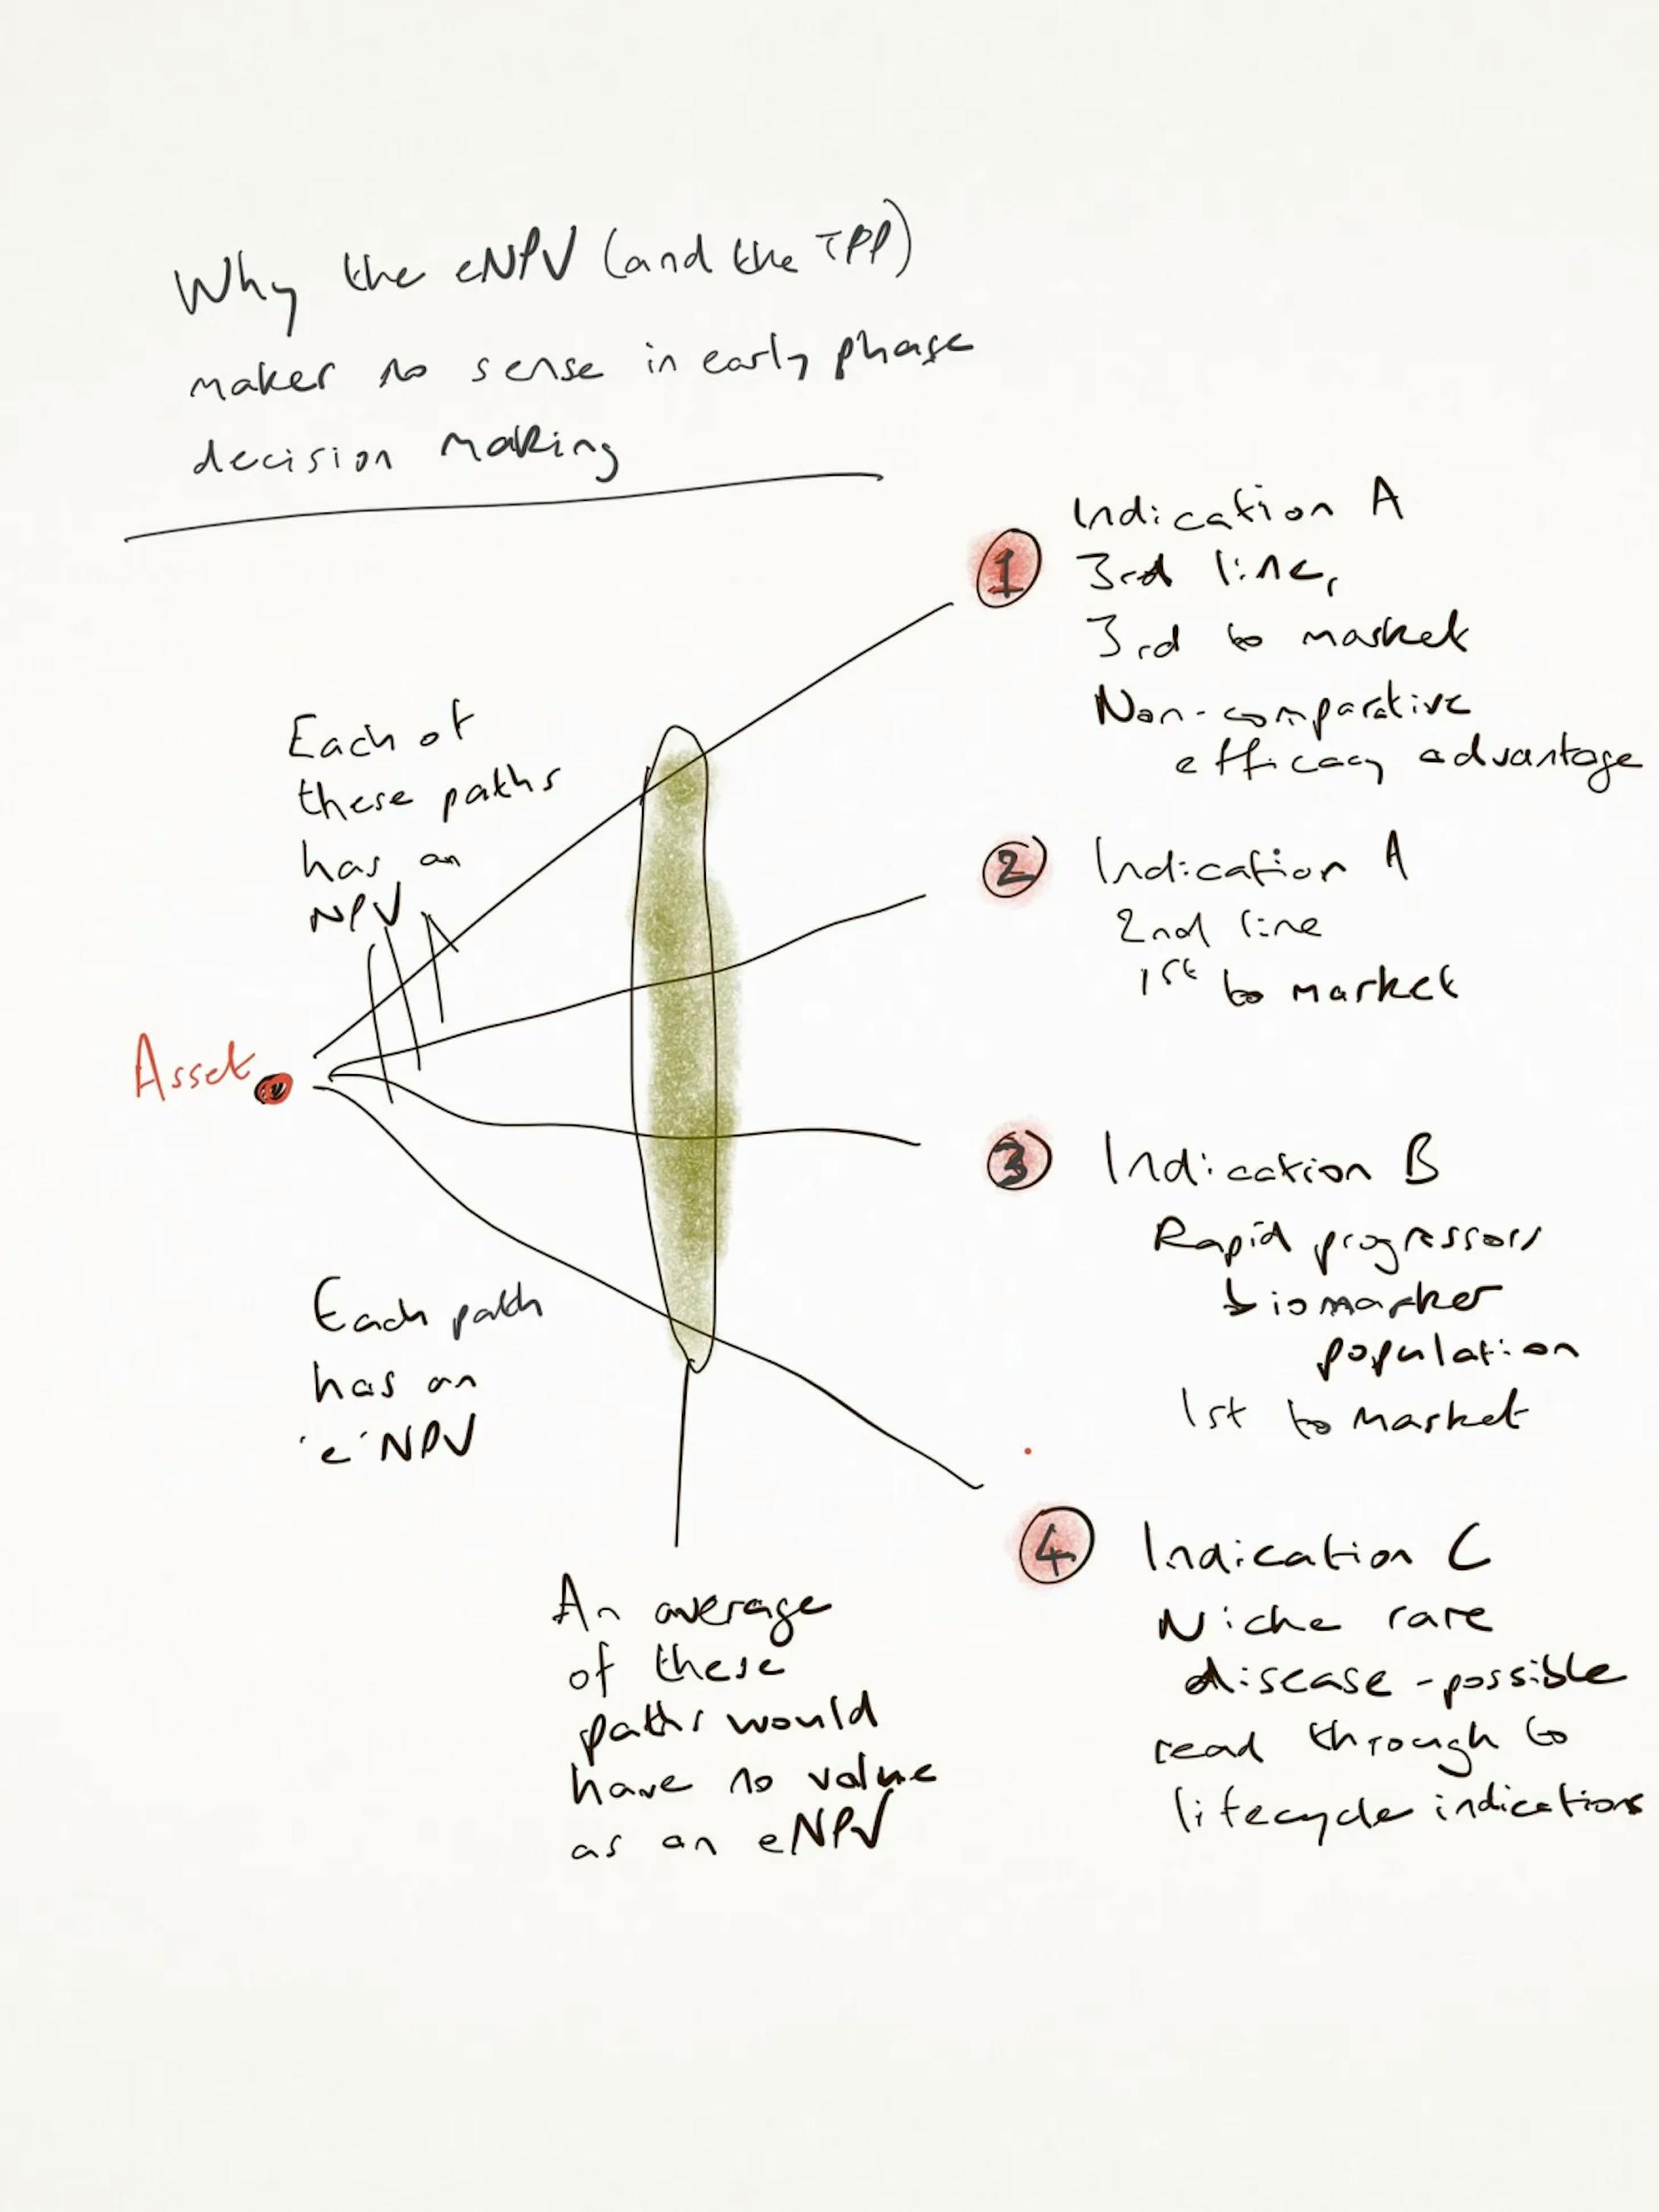 Why the eNPV (and the TPP)
makes no sense in early phase
decision making
Each of
these paths
has an
NPV
Asset
Each path
has an
'e'NPV
An average
of these
paths would
have no value
as an eNPV
1
Indication A
3rd line,
3rd to market
Non-comparative
efficacy advantage
2
Indication A
2nd line
1st to market
3
Indication B
Rapid progressors
biomarker
population
1st to market
4
Indication C
Niche rare
disease - possible
read through to
lifecycle indications